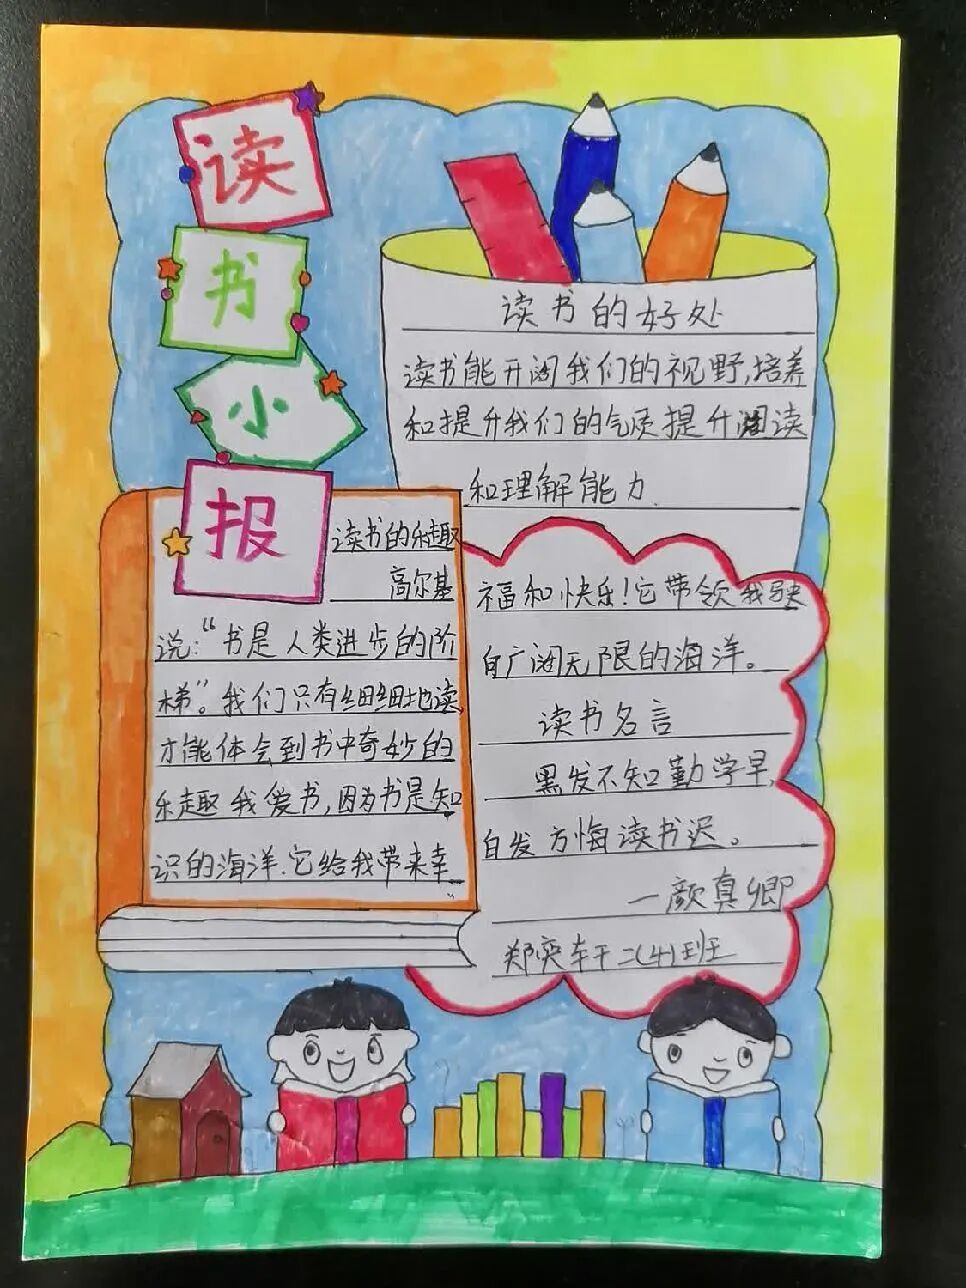 读
书
小
报
读书的好处
读书能开阔我们的视野,培养
和提升我们的气质提升阅读
和理解能力.
读书的乐趣
高尔基
说:“书是人类进步的阶
梯”。我们只有细细地读,
才能体会到书中奇妙的
乐趣 我爱书,因为书是知
识的海洋.它给我带来幸
福和快乐!它带领我驶
向广阔无限的海洋。
读书名言
黑发不知勤学早,
白发方悔读书迟。
—颜真卿
郑奕 二(4)班